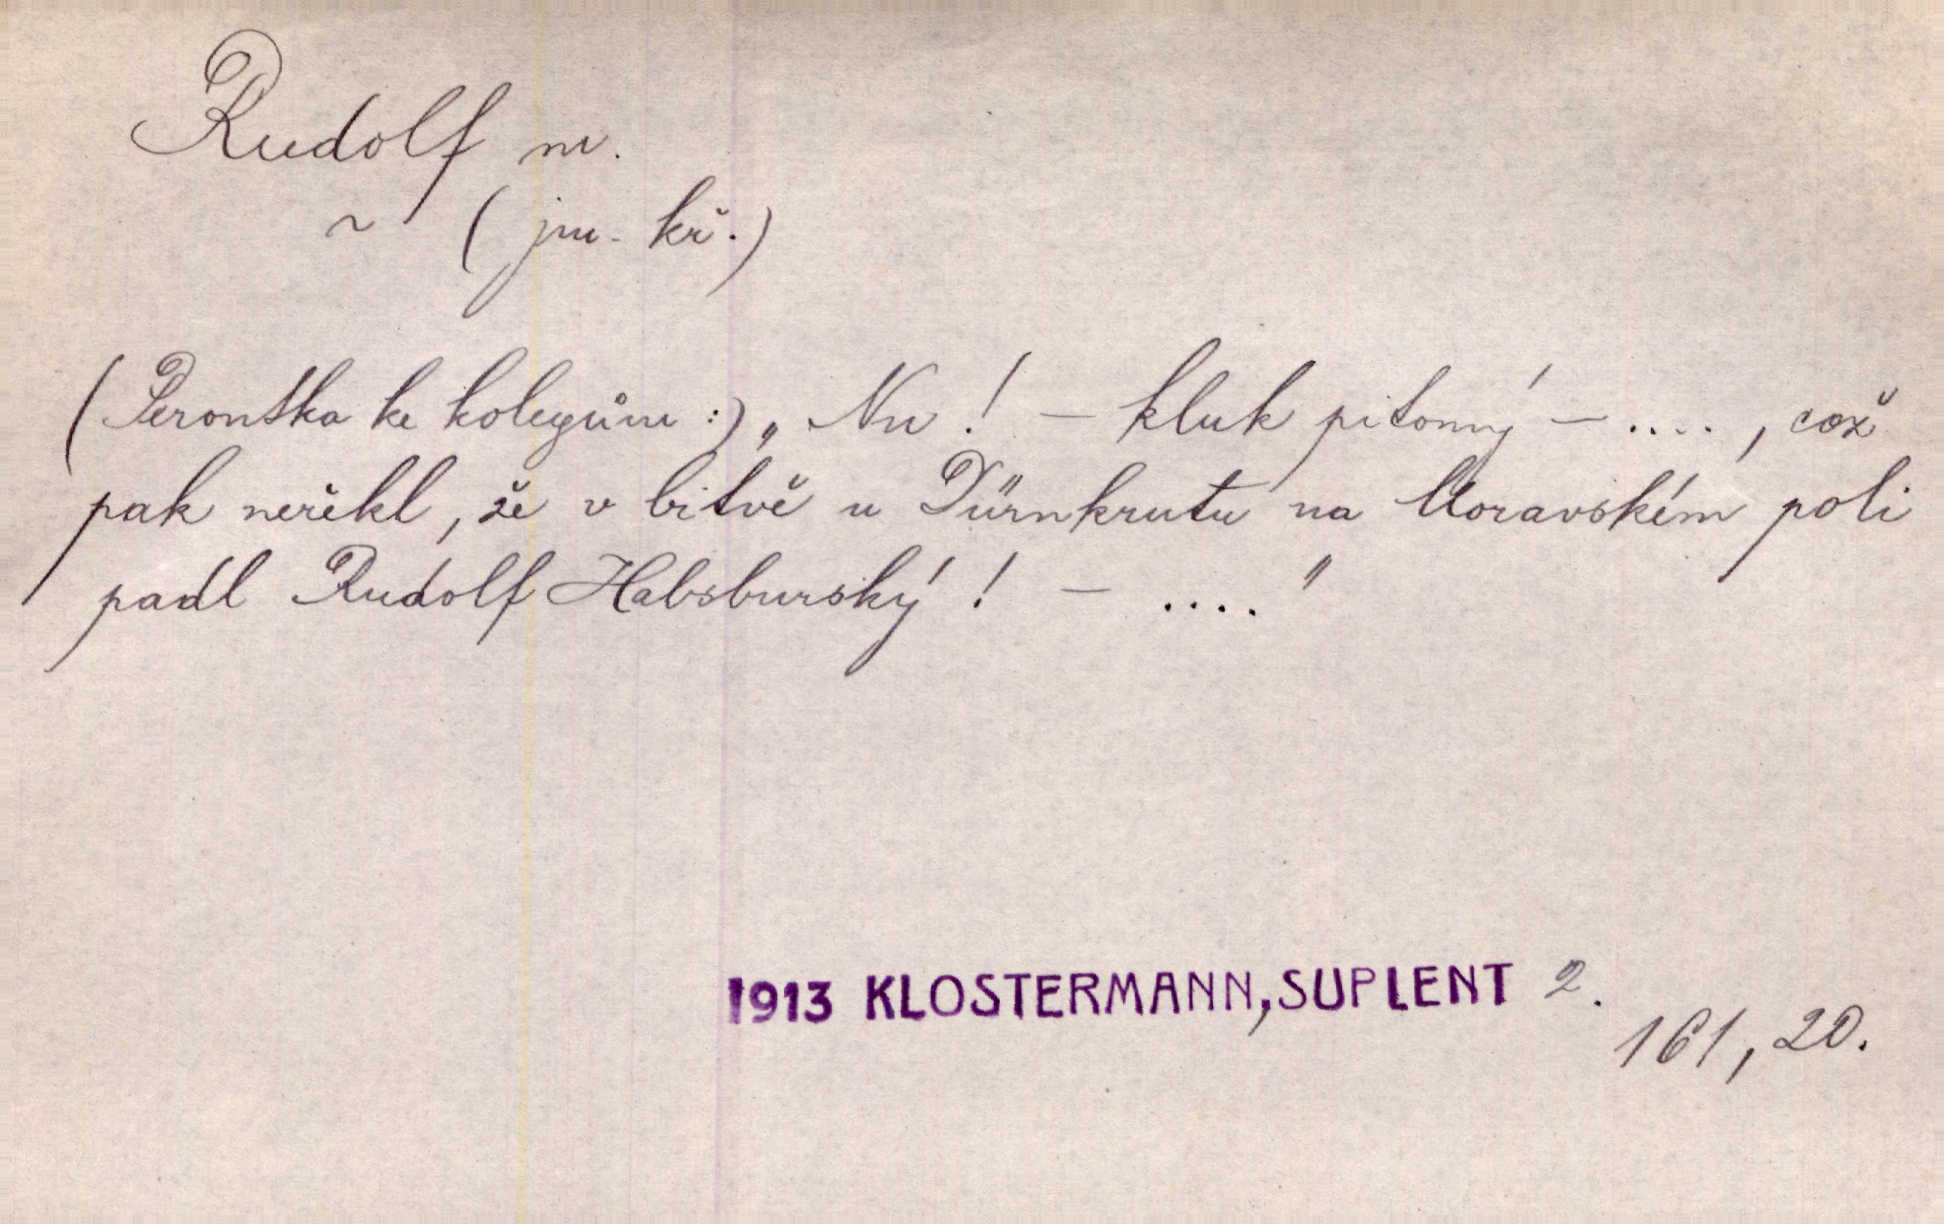 Rudolf m.
~ (jm. kř.)
(Perontka ke kolegům:) „Nu! — kluk pitomý — ...., což
pak neřekl, že v bitvě u Dürnkrutu na Moravském poli
padl Rudolf Habsburský! — ...."
1913 KLOSTERMANN, SUPLENT 2.
161, 20.